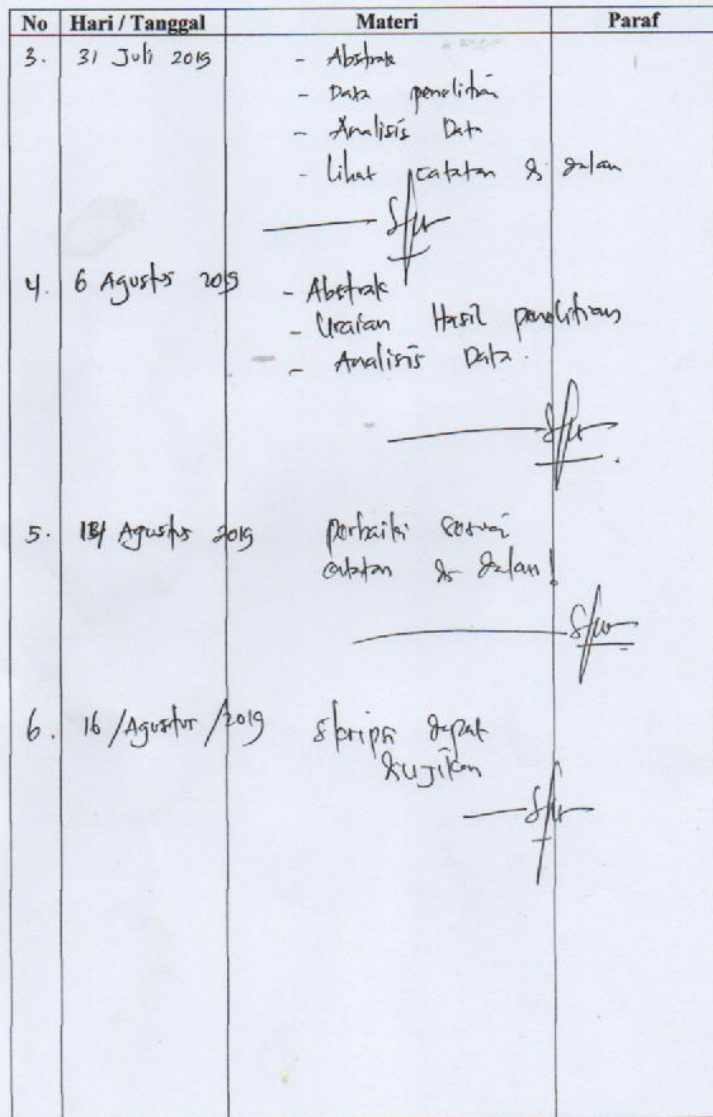 No Hari / Tanggal Materi Paraf
3. 31 Juli 2019 - Abstrak
- Data penelitian
- Analisis Data
- Lihat catatan di dalam
4. 6 Agustus 2019 - Abstrak
- Uraian Hasil penelitian
- Analisis Data.
5. Agustus 2019 perbaiki sesuai
catatan di dalam!
6. 16 /Agustus /2019 Skripsi dapat
diujikan